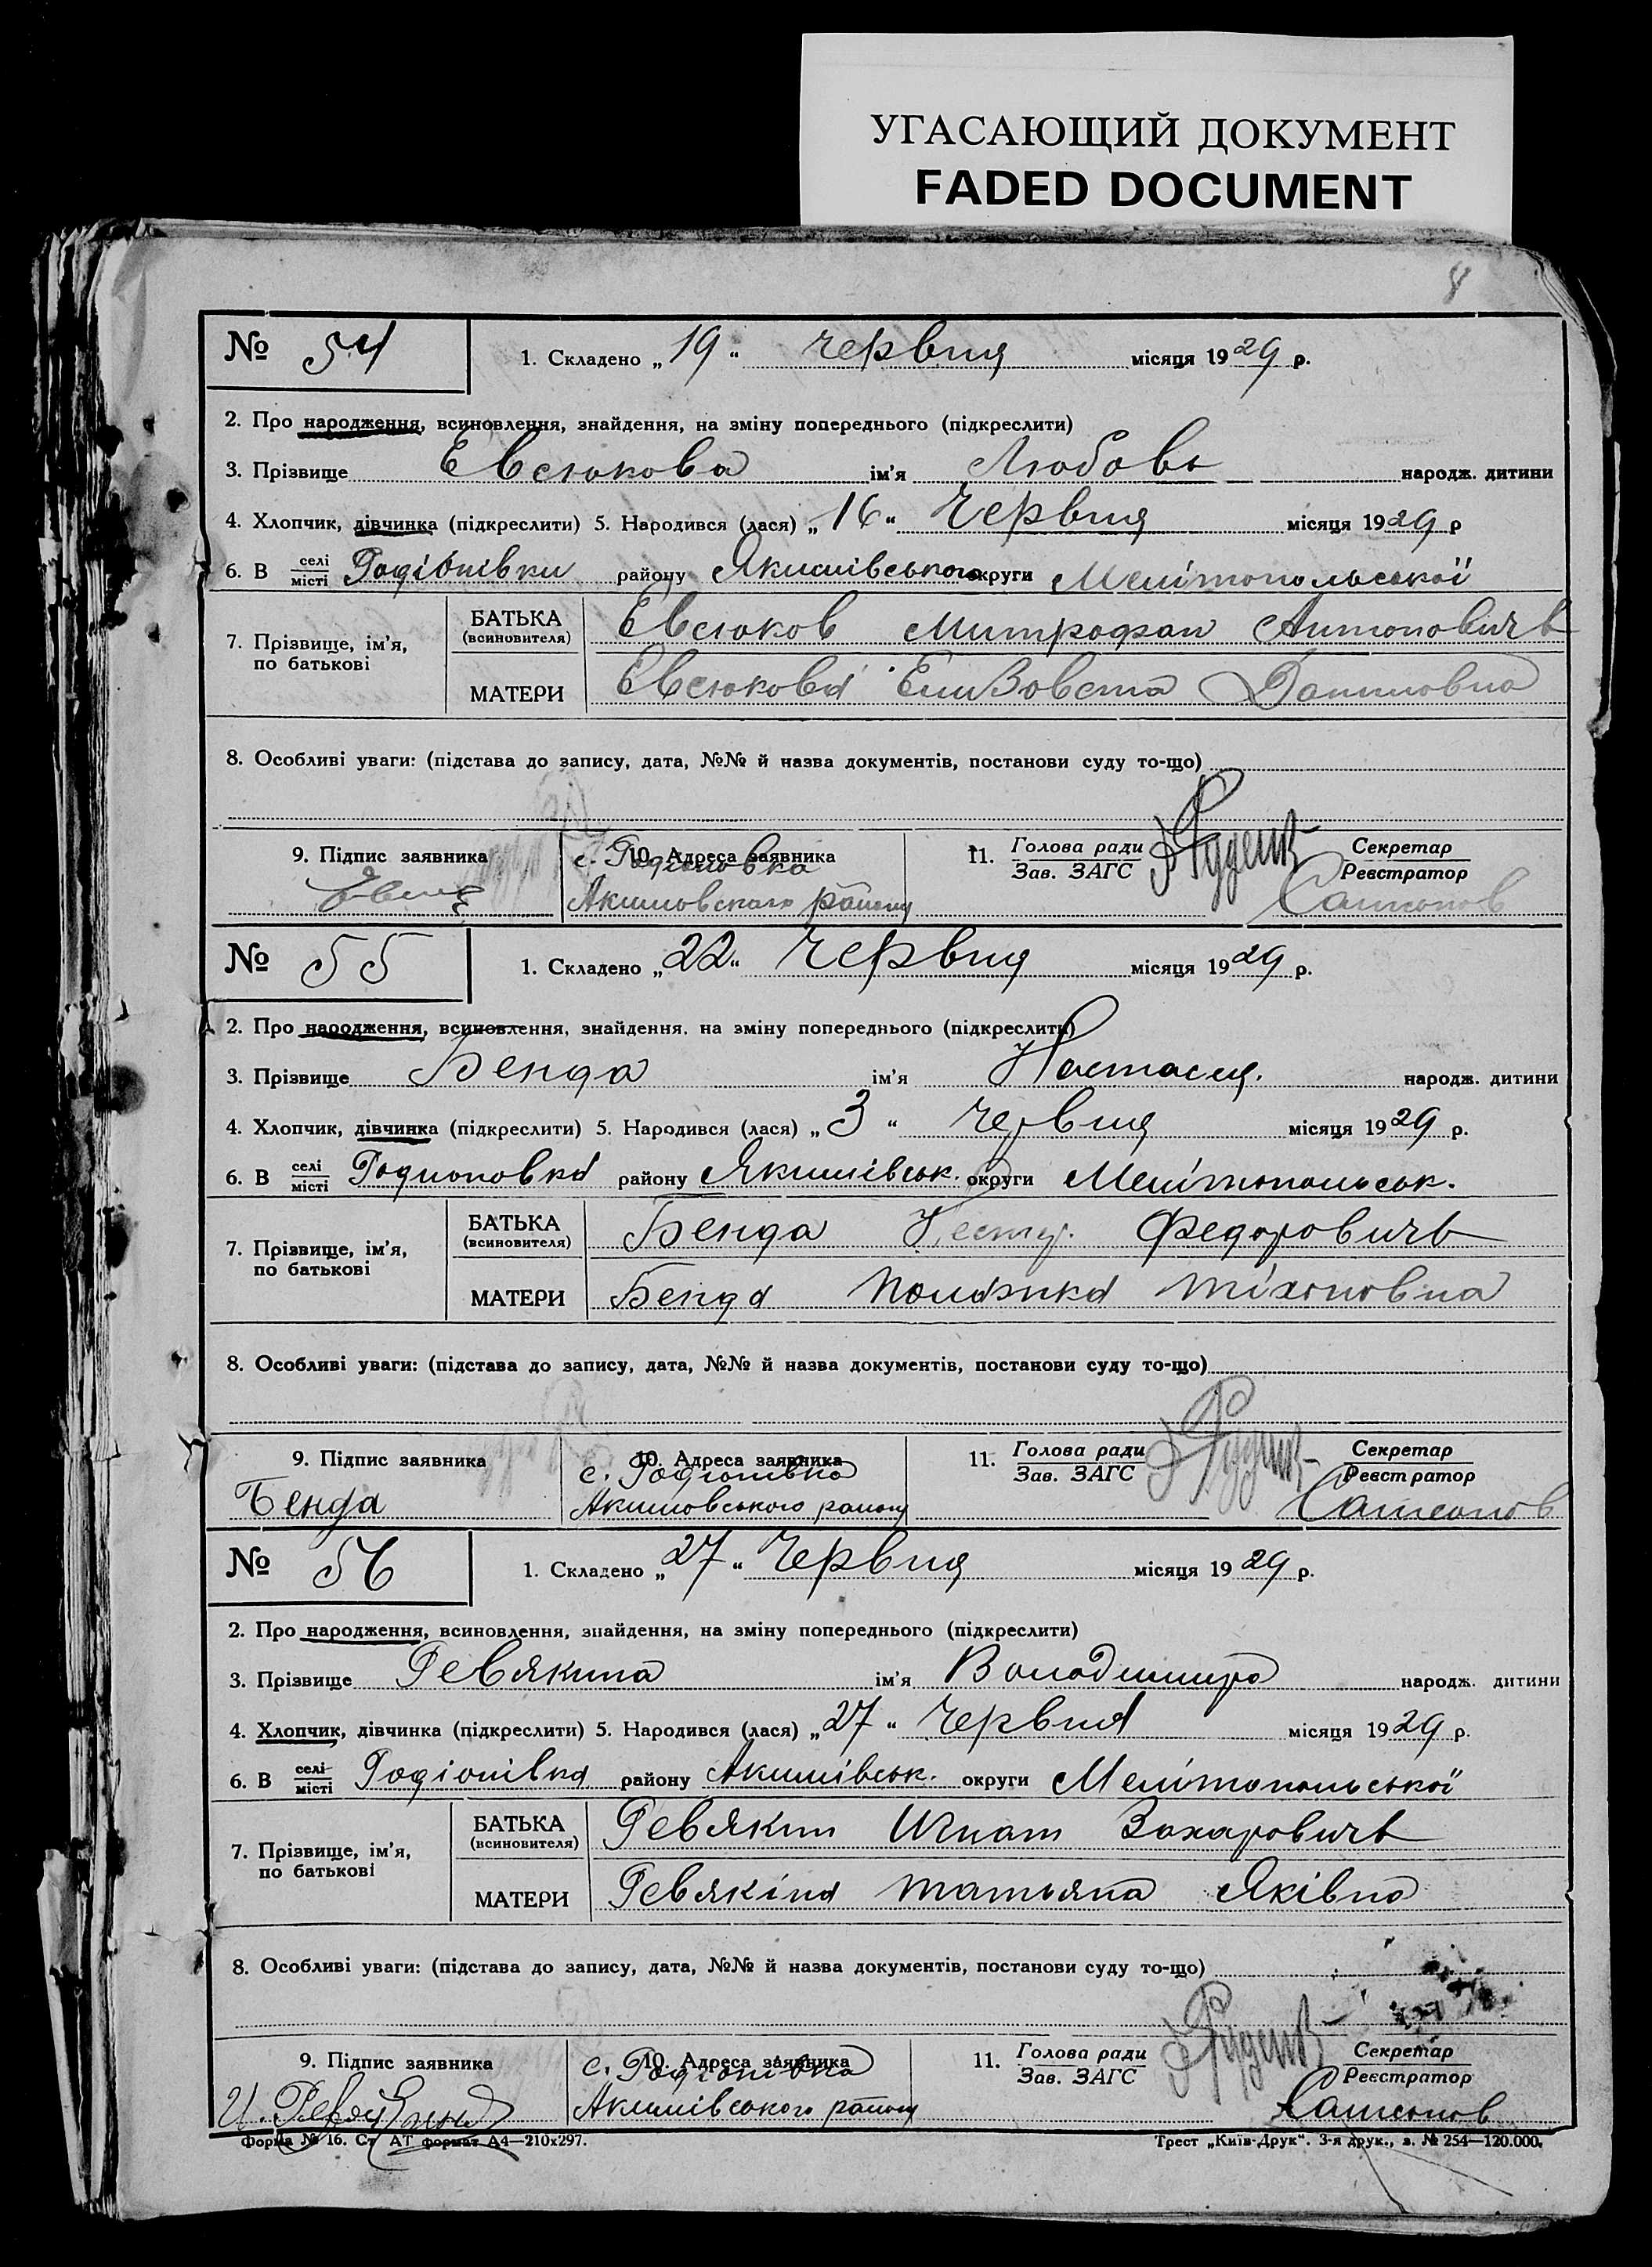 УГАСАЮЩИЙ ДОКУМЕНТ
FADED DOCUMENT
8
№ 54 1. Складено „19“ червня місяця 1929 р.
2. Про народження, всиновлення, знайдення, на зміну попереднього (підкреслити)
3. Прізвище Евсюкова ім'я Любовь народж. дитини
4. Хлопчик, дівчинка (підкреслити) 5. Народився (лася) „16“ Червня місяця 1929 р
6. В селі місті Родіонівки району Якимівського округи Мелітопольської
7. Прізвище, ім'я, по батькові БАТЬКА (всиновителя) Евсюков Митрофан Антоновичъ
МАТЕРИ Евсюкова Елизовета Даниловна
8. Особливі уваги: (підстава до запису, дата, №№ й назва документів, постанови суду то-що)
9. Підпис заявника 10. Адреса заявника 11. Голова ради Секретар
Зав. ЗАГС Реєстратор
с. Родионовка
Акимовского району Самсонов
№ 55 1. Складено „22“ Червня місяця 1929 р.
2. Про народження, всиновлення, знайдення, на зміну попереднього (підкреслити)
3. Прізвище Бенда ім'я Настасия. народж. дитини
4. Хлопчик, дівчинка (підкреслити) 5. Народився (лася) „3“ червня місяця 1929 р.
6. В селі місті Родионовка району Якимівськ. округи Мелітопольськ.
7. Прізвище, ім'я, по батькові БАТЬКА (всиновителя) Бенда Нестер. Федоровичъ
МАТЕРИ Бенда Полажка Тіхоновна
8. Особливі уваги: (підстава до запису, дата, №№ й назва документів, постанови суду то-що)
9. Підпис заявника 10. Адреса заявника 11. Голова ради Секретар
Зав. ЗАГС Реєстратор
с. Родіонівка
Бенда Акимовського району Самсонов
№ 56 1. Складено „27“ Червня місяця 1929 р.
2. Про народження, всиновлення, знайдення, на зміну попереднього (підкреслити)
3. Прізвище Ревякина ім'я Володимира народж. дитини
4. Хлопчик, дівчинка (підкреслити) 5. Народився (лася) „27“ Червня місяця 1929 р.
6. В селі місті Родіонівка району Акимівськ. округи Мелітопольської
7. Прізвище, ім'я, по батькові БАТЬКА (всиновителя) Ревякин Игнат Захаровичъ
МАТЕРИ Ревякіна Татьяна Яківна
8. Особливі уваги: (підстава до запису, дата, №№ й назва документів, постанови суду то-що)
9. Підпис заявника 10. Адреса заявника 11. Голова ради Секретар
Зав. ЗАГС Реєстратор
с. Родіонівка
Акимівського району Самсонов
Форма № 16. Ст. АТ формат А4—210х297. Трест „Київ-Друк“. 3-я друк., з. № 254—120.000.